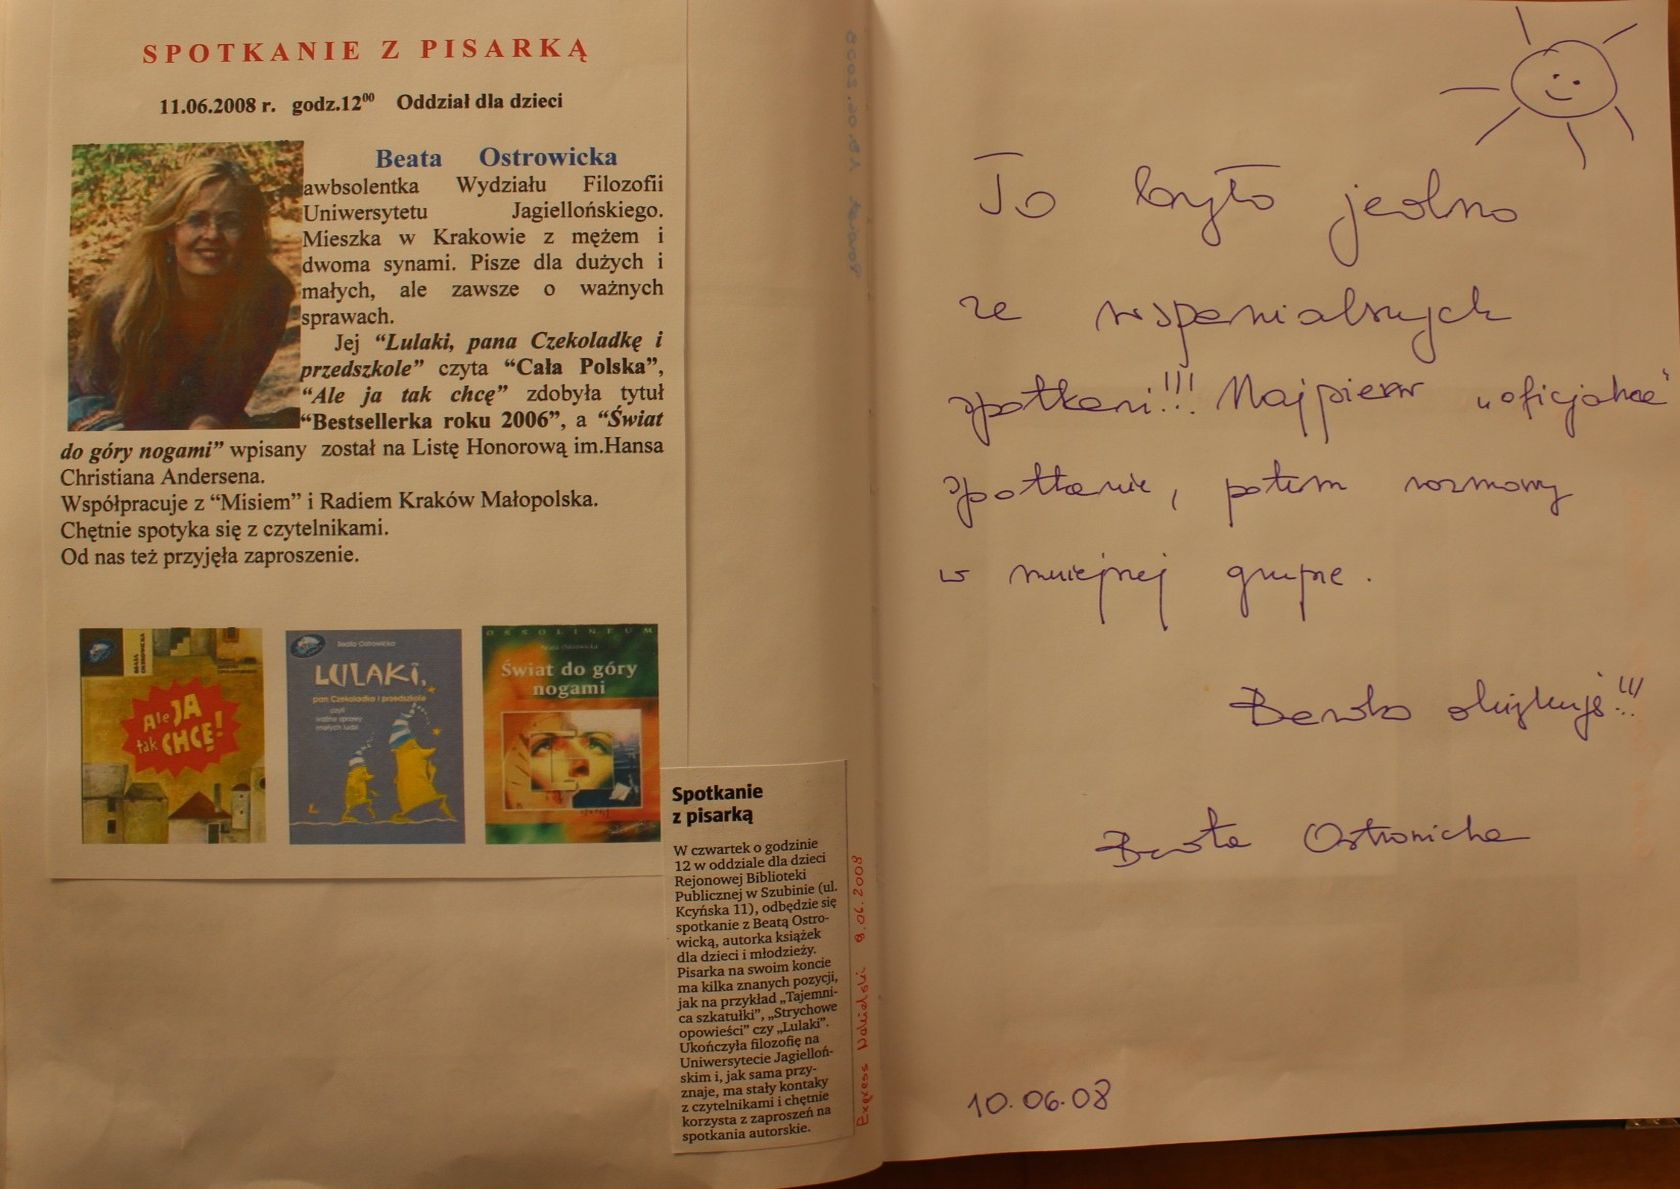 SPOTKANIE Z PISARKĄ
11.06.2008 r. godz.12⁰⁰ Oddział dla dzieci
Beata Ostrowicka
awbsolentka Wydziału Filozofii
Uniwersytetu Jagiellońskiego.
Mieszka w Krakowie z mężem i
dwoma synami. Pisze dla dużych i
małych, ale zawsze o ważnych
sprawach.
Jej “Lulaki, pana Czekoladkę i
przedszkole” czyta “Cała Polska”,
“Ale ja tak chcę” zdobyła tytuł
“Bestsellerka roku 2006”, a “Świat
do góry nogami” wpisany został na Listę Honorową im.Hansa
Christiana Andersena.
Współpracuje z “Misiem” i Radiem Kraków Małopolska.
Chętnie spotyka się z czytelnikami.
Od nas też przyjęła zaproszenie.
BEATA
OSTROWICKA
Ale JA
tak CHCĘ!
Beata Ostrowicka
LULAKI,
pan Czekoladka i przedszkole
czyli
ważne sprawy
małych ludzi
OSSOLINEUM
Beata Ostrowicka
Świat do góry
nogami
Spotkanie
z pisarką
W czwartek o godzinie
12 w oddziale dla dzieci
Rejonowej Biblioteki
Publicznej w Szubinie (ul.
Kcyńska 11), odbędzie się
spotkanie z Beatą Ostro-
wicką, autorka książek
dla dzieci i młodzieży.
Pisarka na swoim koncie
ma kilka znanych pozycji,
jak na przykład „Tajemni-
ca szkatułki”, „Strychowe
opowieści” czy „Lulaki”.
Ukończyła filozofię na
Uniwersytecie Jagielloń-
skim i, jak sama przy-
znaje, ma stały kontaky
z czytelnikami i chętnie
korzysta z zaproszeń na
spotkania autorskie.
Express Nakielski 9.06.2008
To było jedno
ze wspanialszych
spotkań!!! Najpierw „oficjalne”
spotkanie, potem rozmowy
w mniejszej grupie.
Bardzo dziękuję!!!
Beata Ostrowicka
10.06.08